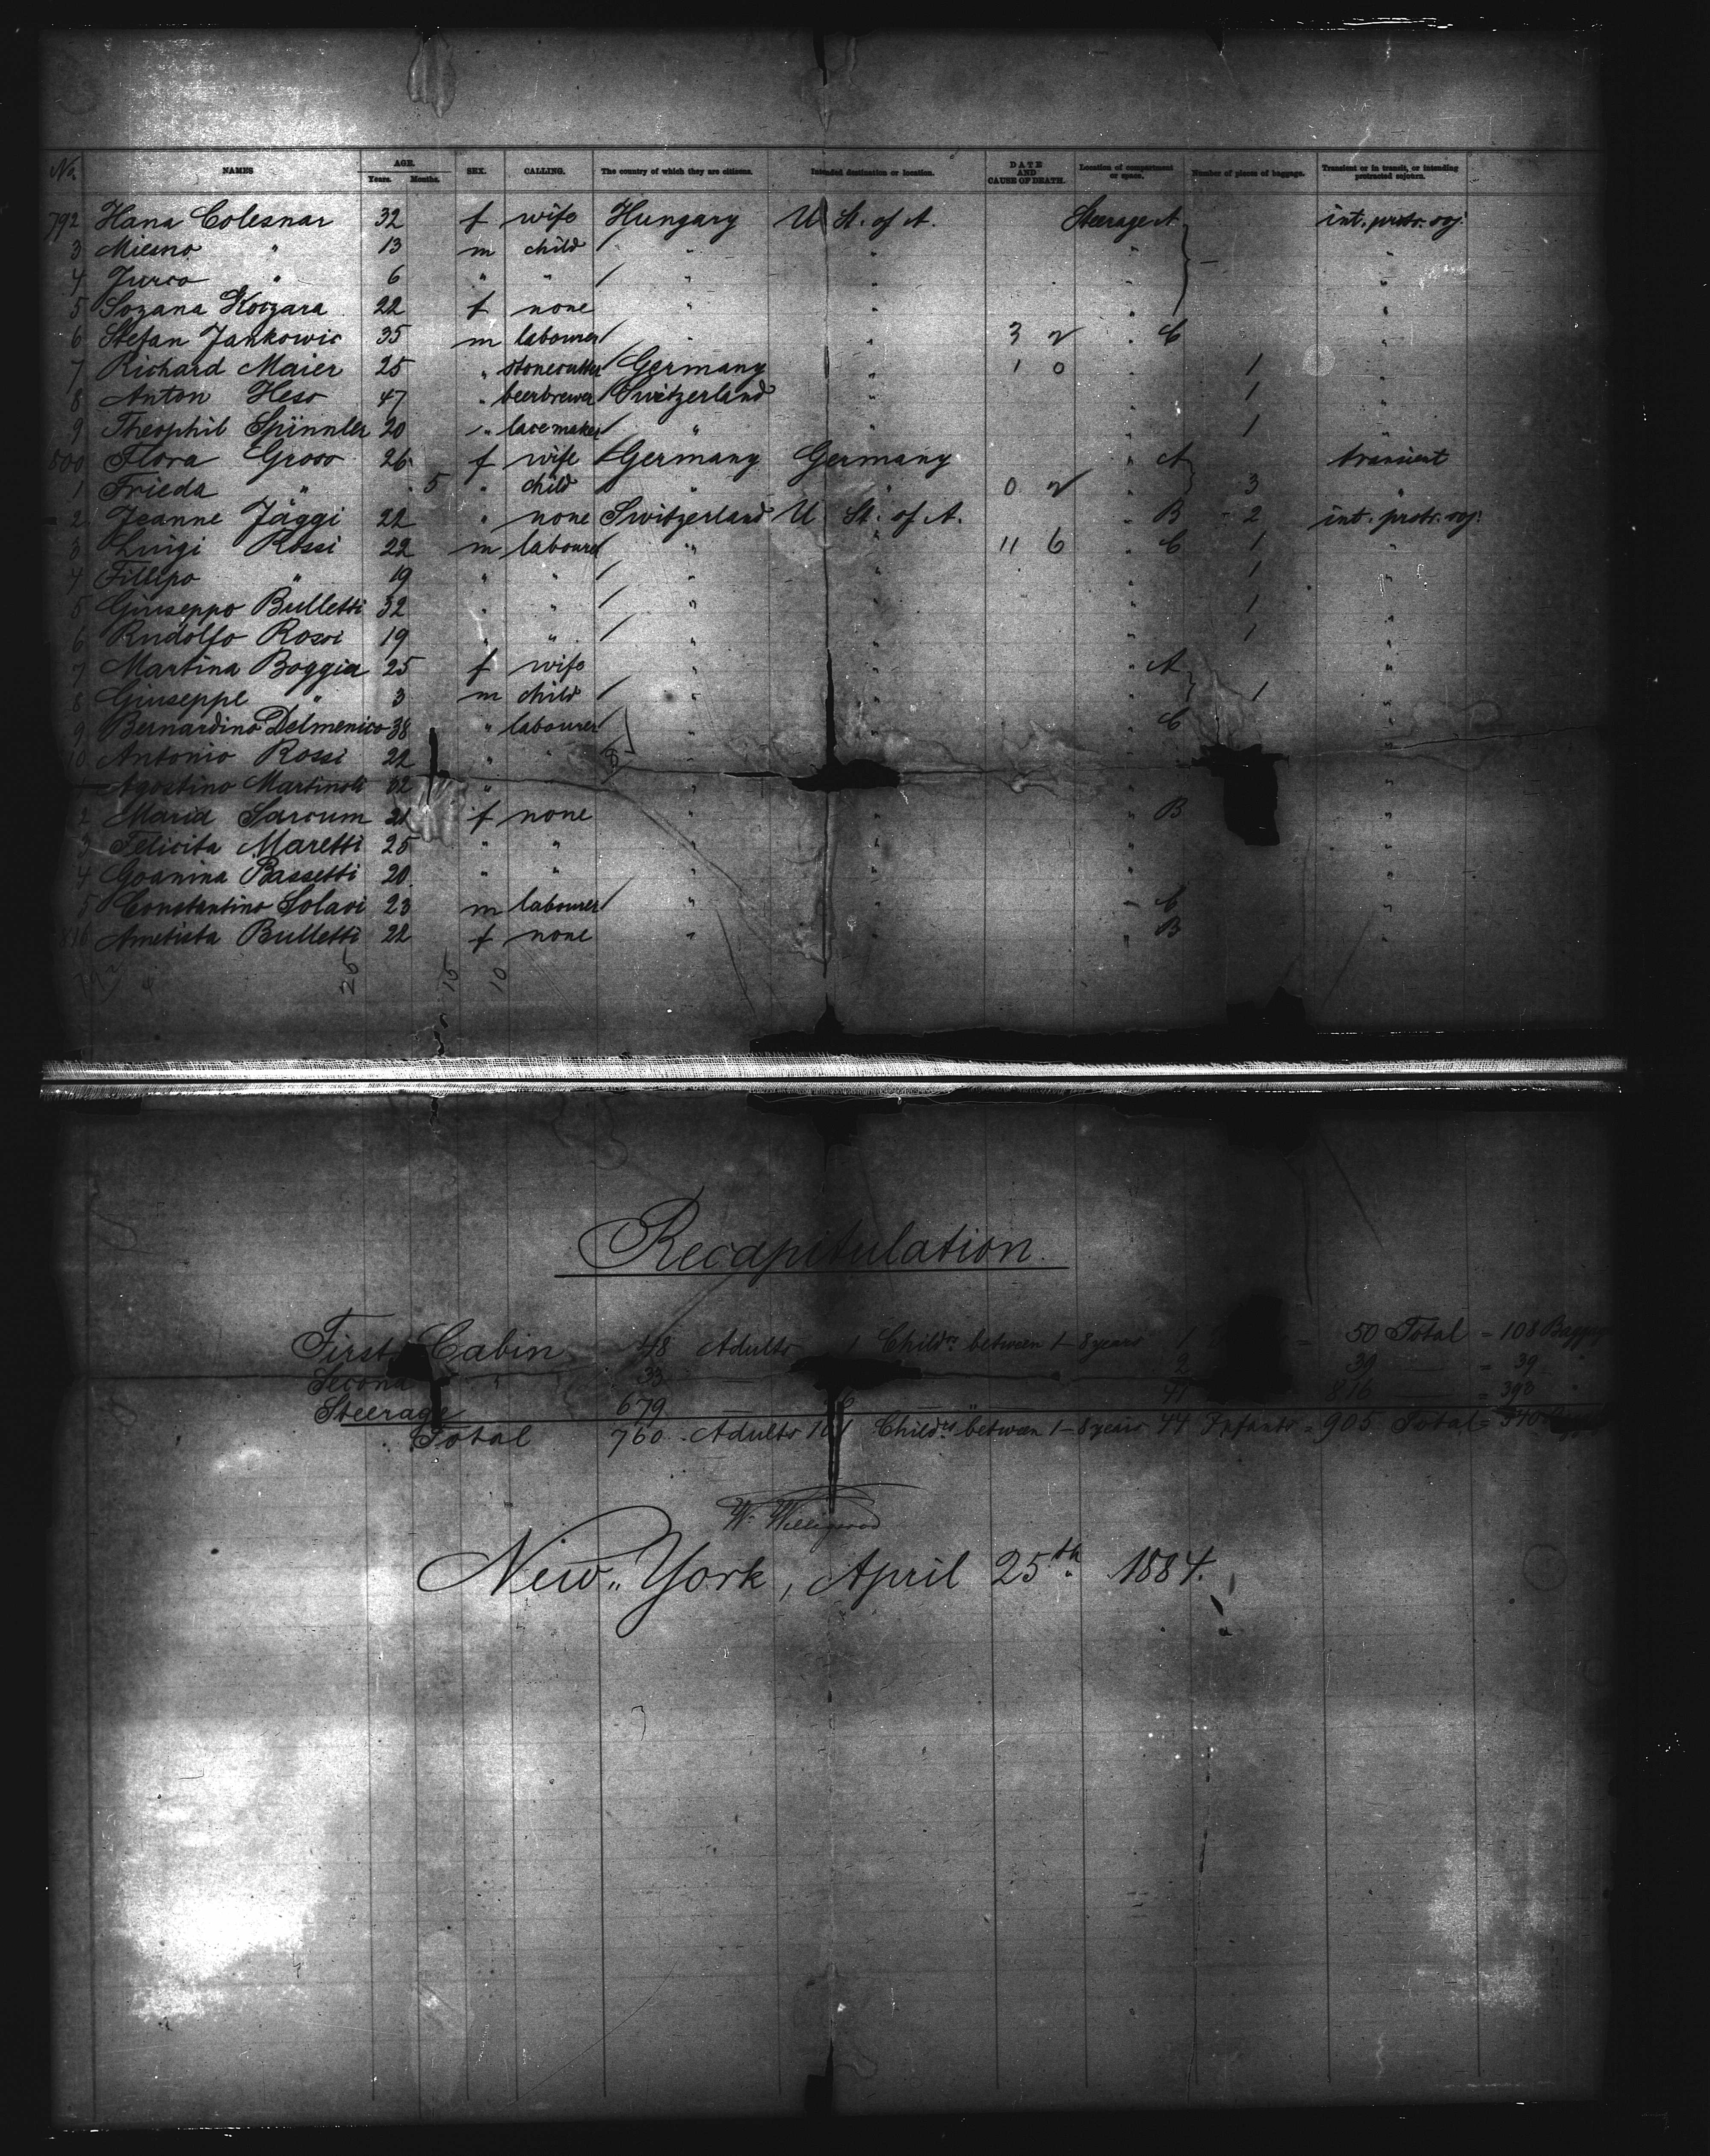 No. NAMES AGE. Years. Months. SEX. CALLING. The country of which they are citizens. Intended destination or location. DATE AND CAUSE OF DEATH. Location of compartment or space. Number of pieces of baggage. Transient or in transit, or intending protracted sojourn.
792 Hana Colesnar 32 f wife Hungary U St. of A. Steerage A int. protr. soj.
3 Miesno " 13 m child " " " "
4 Jurco " 6 " " / " " "
5 Sozana Koczara 22 f none " " " "
6 Stefan Jankowic 35 m labourer / " " 3 2 " C "
7 Richard Maier 25 " stonecutter Germany " 1 0 " 1 "
8 Anton Hess 47 " beerbrewer Switzerland " " 1 "
9 Theophil Spinnler 20 " lacemaker / " " " 1 "
800 Flora Gross 26 f wife Germany Germany " A transient
1 Frieda " 5 " child " 0 2 " 3 "
2 Jeanne Jäggi 22 " none Switzerland U St. of A. " B 2 int. protr. soj.
3 Luigi Rossi 22 m labourer / " " 11 6 " C 1 "
4 Fillipo " 19 " " / " " " 1 "
5 Giuseppo Bulletti 32 " " / " " " 1 "
6 Rudolfo Rossi 19 " " / " " " 1 "
7 Martina Boggia 25 f wife " " " A "
8 Giuseppe " 3 m child / " " " 1 "
9 Bernardino Delmenico 38 " labourer / " " C "
10 Antonio Rossi 22 " " "
Agostino Martinoli 32 " " " "
2 Maria Sarcum 21 f none " " " B "
3 Felicita Maretti 25 " " " " " "
4 Goanina Bassetti 20 " " " " " "
5 Constantino Solari 23 m labourer / " " " C "
816 Ametista Bulletti 22 f none " " B "
26 16 10
Recapitulation.
First Cabin 48 Adults 1 Childrn. between 1-8 years 1 = 50 Total = 108
Second " 33 — 2 39 — = 39
Steerage 679 — — " — 41 816 — = 393
Total 760 Adults 101 Childrn. between 1-8 years 44 Infants = 905 Total = 540
W. Willigerod
New-York, April 25th. 1884.